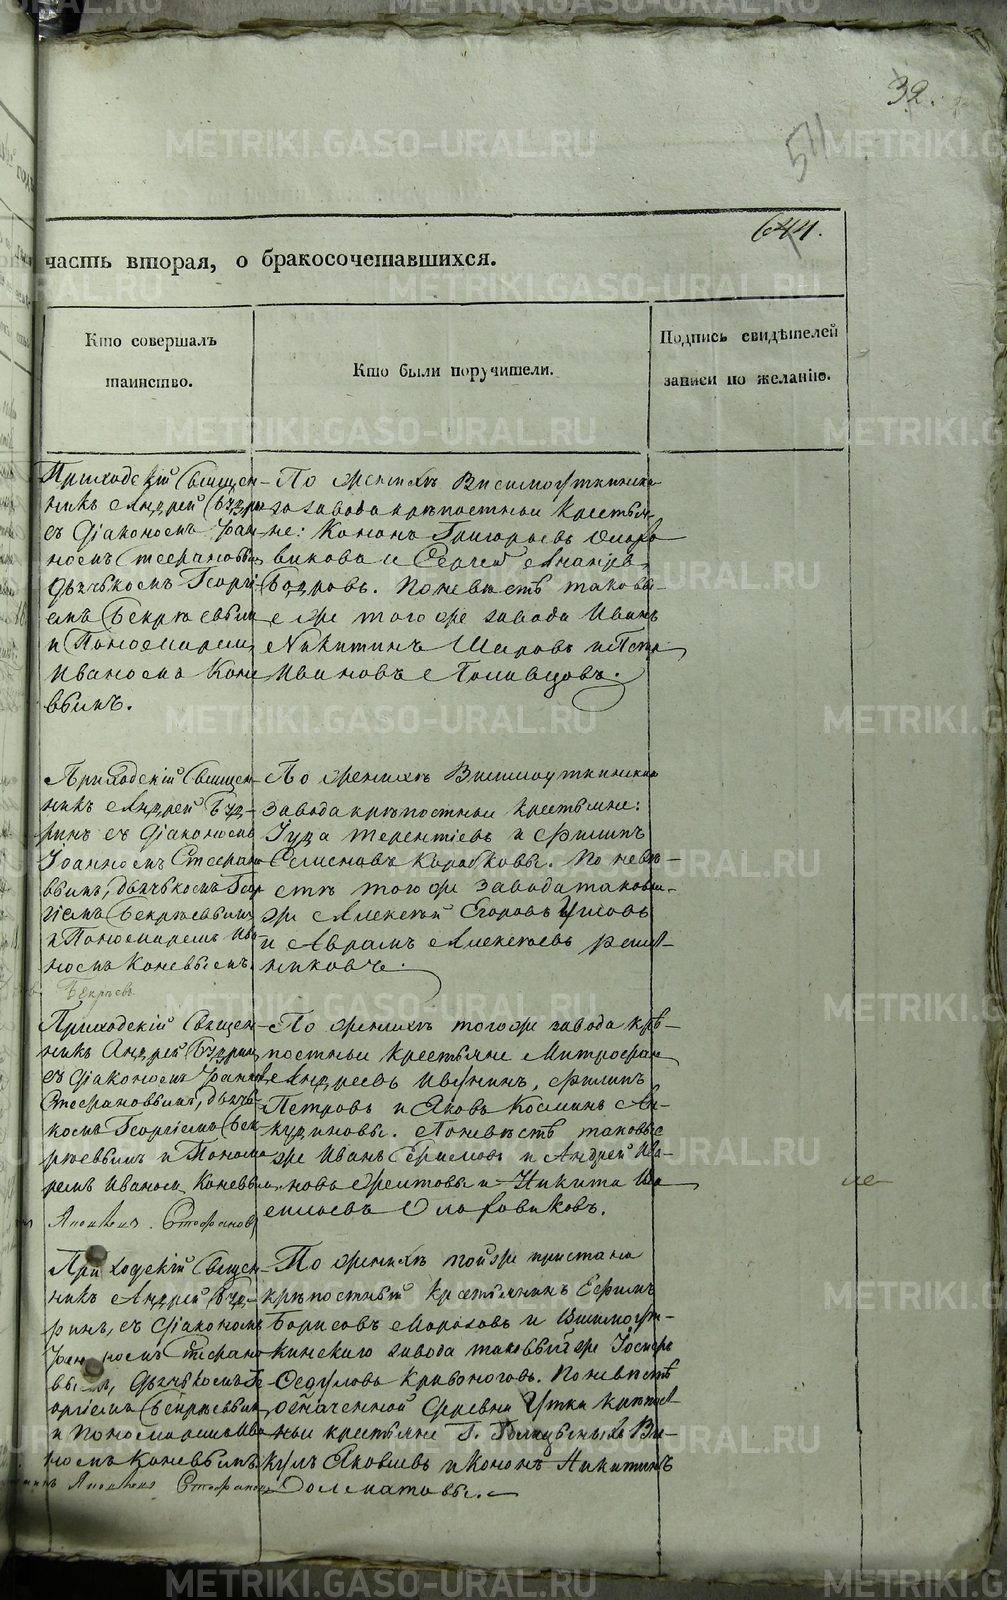 32.
511
644.
часть вторая, о бракосочетавшихся.
Кто совершалъ
таинство.
Кто были поручители.
Подпись свидѣтелей
записи по желанію.
Приходскій Священ-
никъ Андрей
съ Діакономъ
дьячькомъ Георгі
емъ Бекряевымъ
и Пономаремъ
Иваномъ Коне
вымъ.
По женихѣ Висимоуткинска
го завода крѣпостные крестья
не: Кононъ Григорьевъ
и Сергей
По невѣстѣ таковы
е же того же завода Иванъ
Никитинъ Шаровъ и Петръ
Ивановъ
Приходскій Священ-
никъ Андрей Буд-
ринъ съ Діакономъ
Іоанномъ Стефано
вымъ, дьячькомъ Геор
гіемъ Бекряевымъ
и Пономаремъ Ива-
номъ Коневымъ.
Бекряевъ
По женихѣ Висимоуткинскаго
завода крѣпостные крестьяне:
Іуда Терентіевъ и Филипъ
Семеновъ Коробковы. По невѣ-
стѣ того же завода таковы-
же Алексѣй Егоровъ
и Аврамъ Алексѣевъ
никовъ.
Приходскій Священ-
никъ Андрей Будринъ
съ Діакономъ
Стефановымъ, дьячь-
комъ Георгіемъ Бек
ряевымъ и Понома
ремъ Иваномъ Коневы
Стефановъ
По женихѣ того же завода крѣ-
постные крестьяне Митрофанъ
Андреевъ Ивунинъ, Филипъ
Петровъ и Яковъ Козминъ
По невѣстѣ таковые
же Иванъ и Андрей Ива-
новъ и Никита
Приходскій Священ
никъ Андрей Буд-
ринъ, съ Діакономъ
Стефано
вымъ, дьячькомъ Ге
оргіемъ Бекряевымъ
и Пономаремъ Ива
номъ Коневымъ
Стефановъ
По женихѣ той же пристани
крѣпостный крестьянинъ Ефимъ
Борисовъ Морозовъ и Висимоут-
кинскаго завода таковый же
Федуловъ Кривоноговъ. По невѣстѣ
означенной деревни Утки крѣпост
ные крестьяне Г. Голицыныхъ Ви-
кулъ Яковлевъ и Кононъ Никитинъ
Долматовы.
METRIKI.GASO-URAL.RU